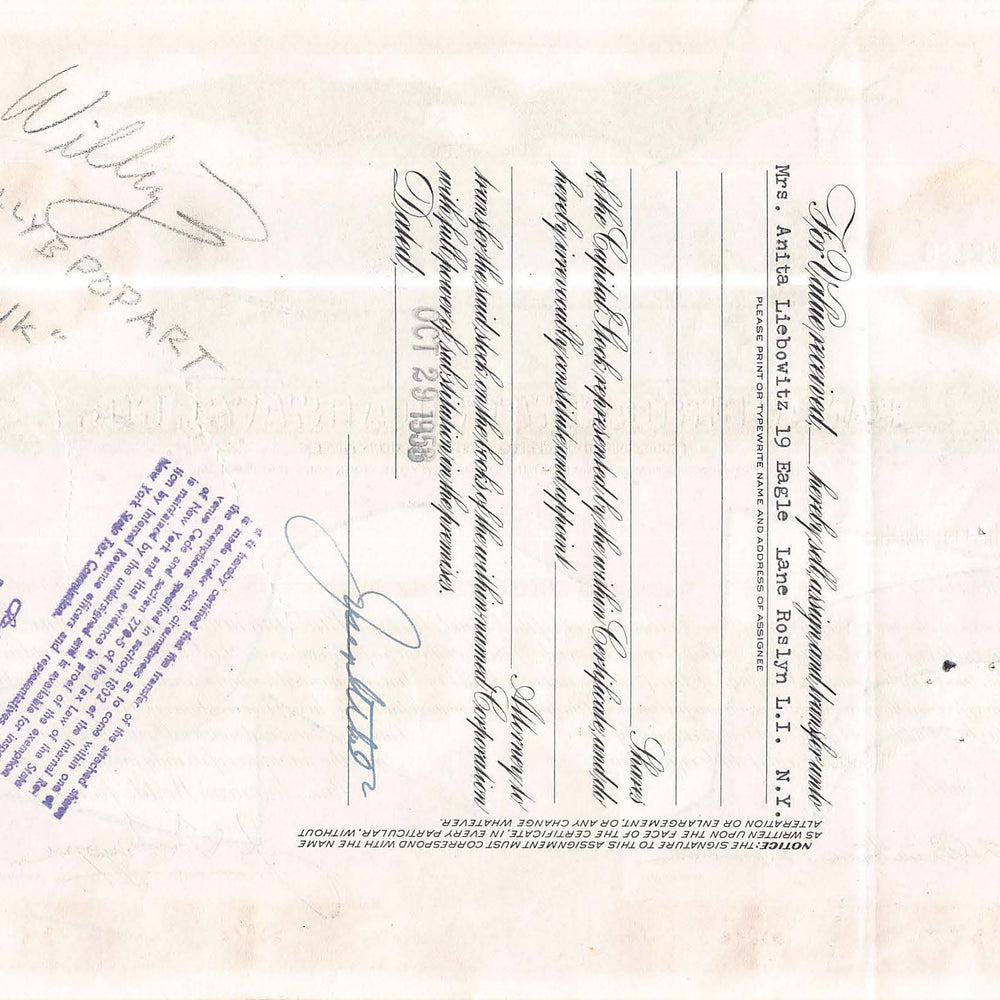 For Value received, hereby sell, assign and transfer unto
Mrs. Anita Liebowitz 19 Eagle Lane Roslyn L.I. N.Y.
PLEASE PRINT OR TYPEWRITE NAME AND ADDRESS OF ASSIGNEE
Shares
of the Capital Stock represented by the within Certificate, and do
hereby irrevocably constitute and appoint
Attorney to
transfer the said stock on the books of the within-named Corporation
with full power of substitution in the premises.
Dated OCT 29 195
NOTICE: THE SIGNATURE TO THIS ASSIGNMENT MUST CORRESPOND WITH THE NAME
AS WRITTEN UPON THE FACE OF THE CERTIFICATE, IN EVERY PARTICULAR, WITHOUT
ALTERATION OR ENLARGEMENT, OR ANY CHANGE WHATEVER.
Willy
POP ART
it is hereby certified that the transfer of the attached shares
is made under such circumstances as to come within one of
the exemptions specified in section 1802 of the Internal Re-
venue Code and section 270-5 of the Tax Law of the State
of New York and that evidence in proof of the exemption
is maintained by the undersigned and is available for
tion by Internal Revenue officers and representatives
New York State Tax Commission.